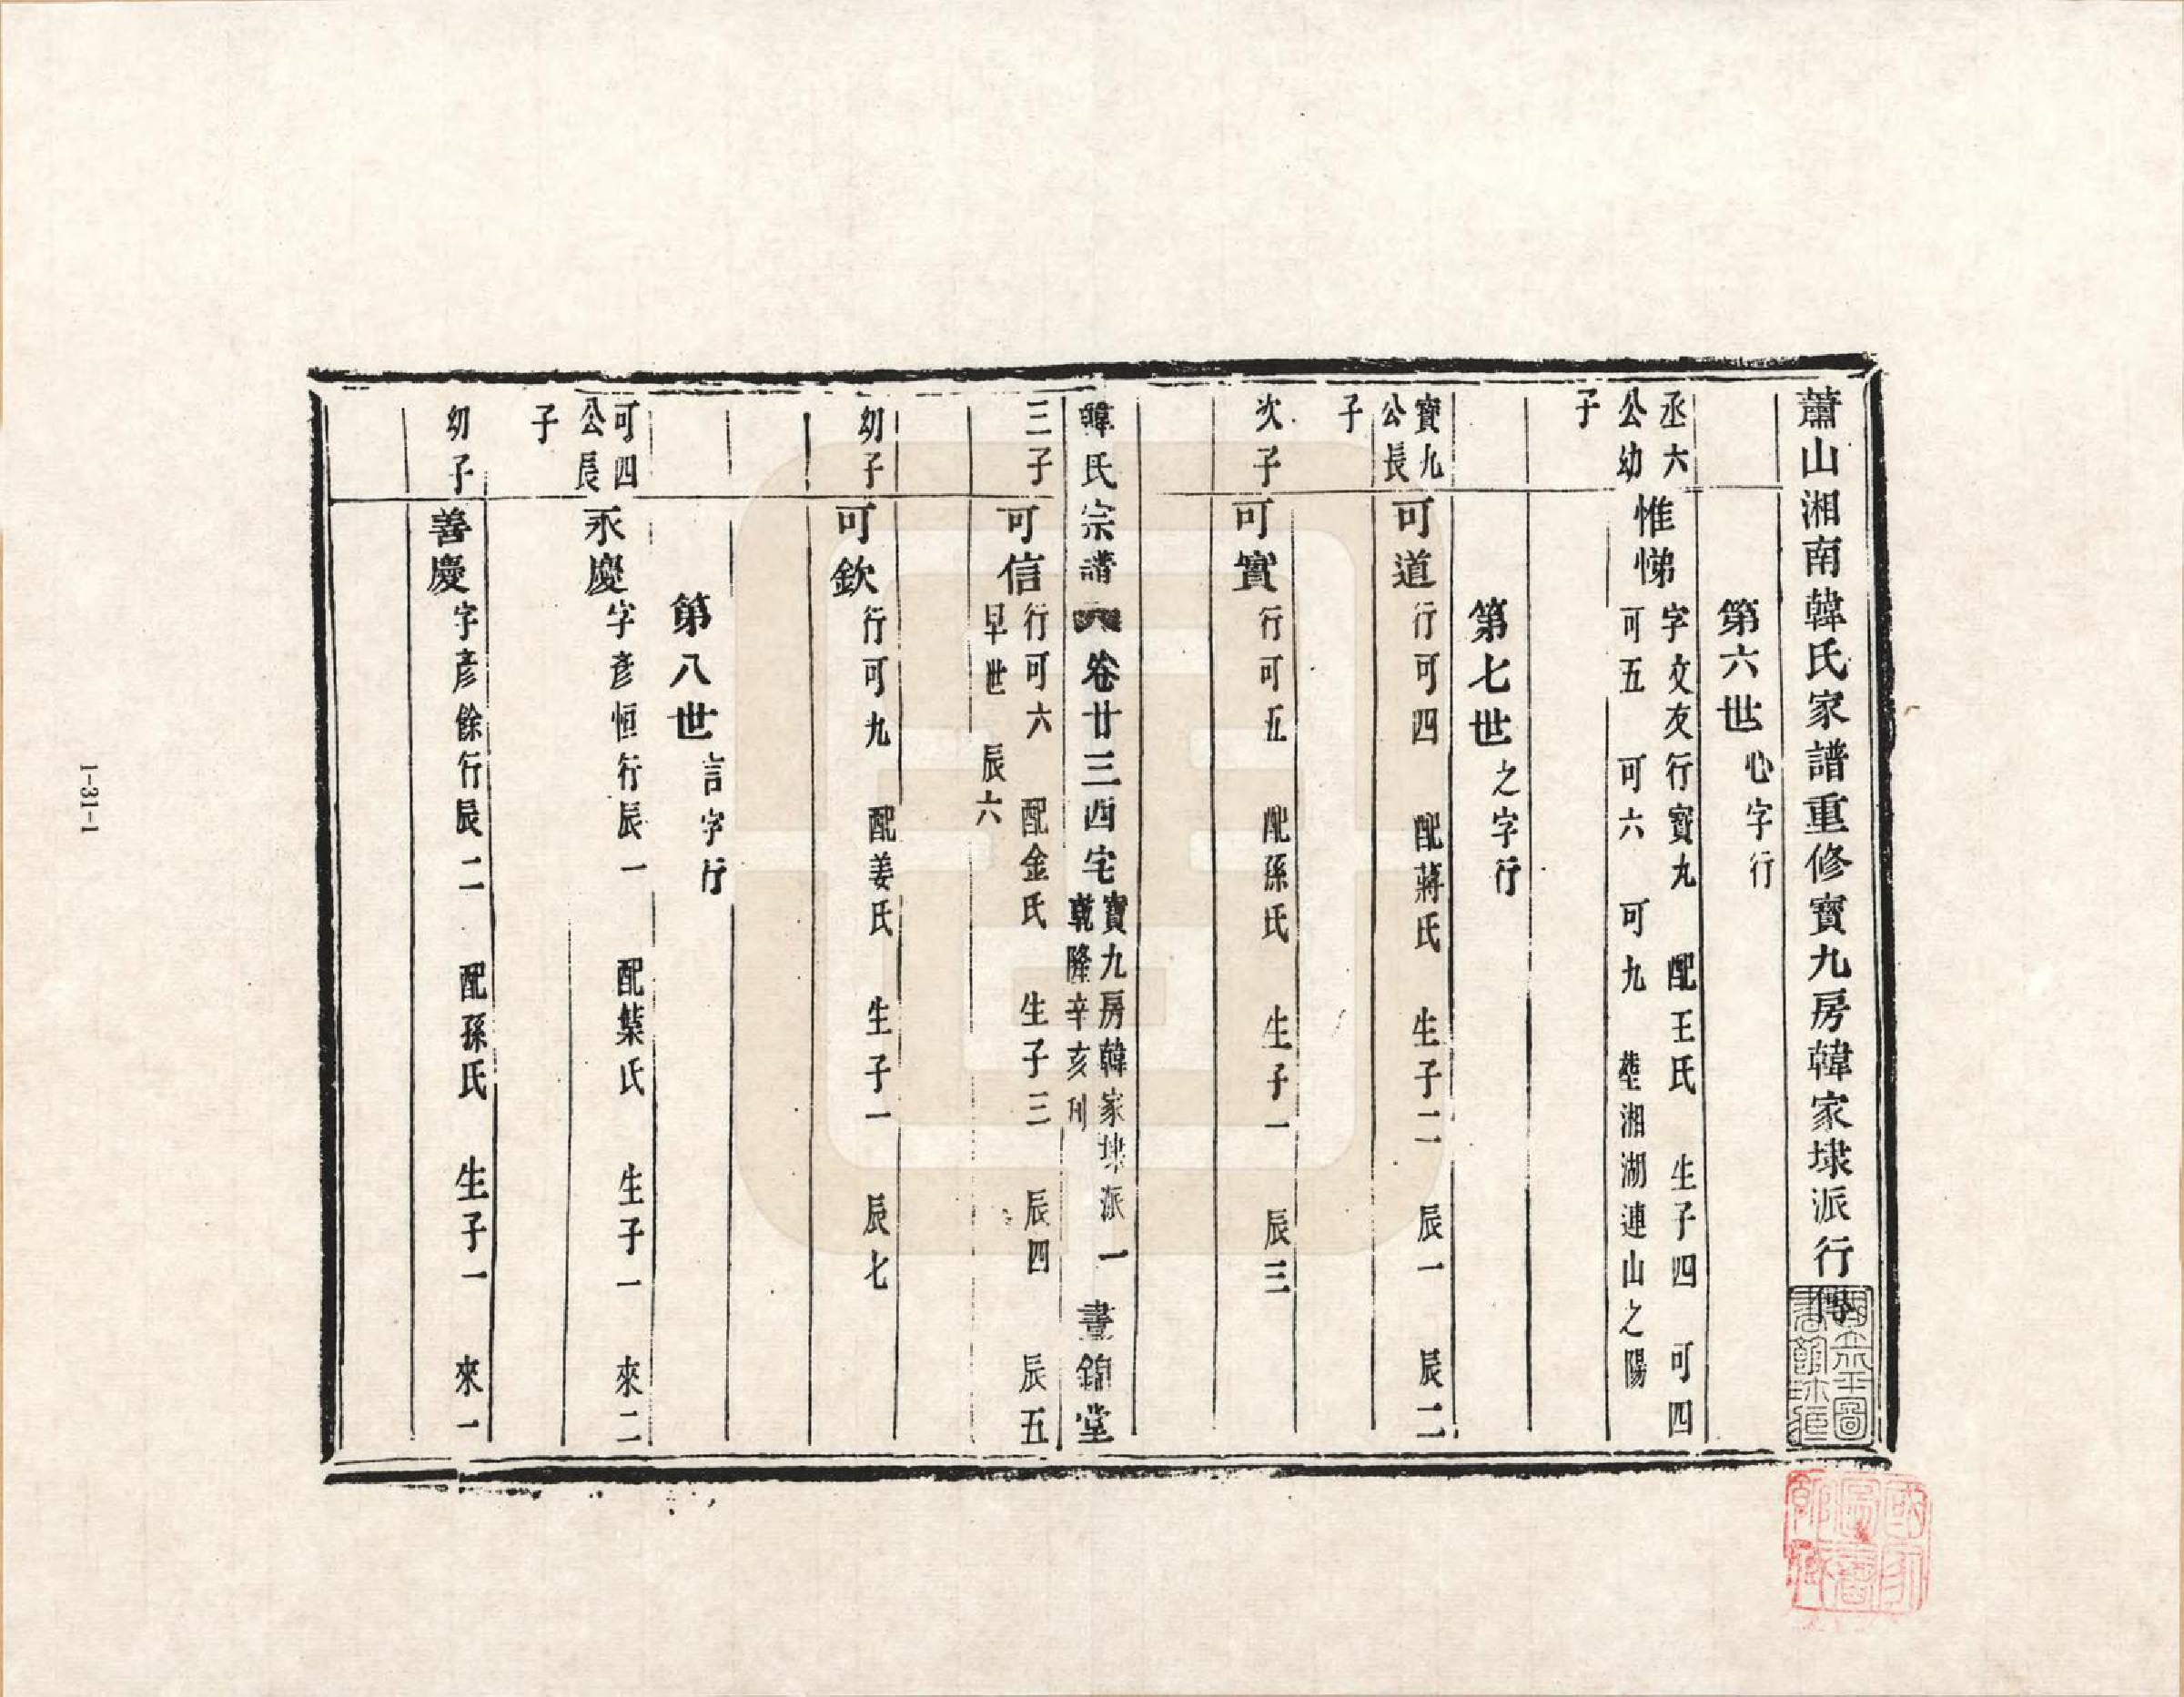 蕭山湘南韓氏家譜重修寶九房韓家埭派行傳
第六世 心字行
丞六公幼子 惟悌 字文友行寶九 配王氏 生子四 可四
可五 可六 可九 塟湘湖連山之陽
第七世 之字行
寶九公長子 可道 行可四 配蔣氏 生子二 辰一 辰二
次子 可實 行可五 配孫氏 生子一 辰三
韓氏宗譜 卷廿三西宅 寶九房韓家埭派 一 晝錦堂
乾隆辛亥刊
三子 可信 行可六 配金氏 生子三 辰四 辰五
早世 辰六
幼子 可欽 行可九 配姜氏 生子一 辰七
第八世 言字行
可四公長子 永慶 字彥恒行辰一 配葉氏 生子一 來二
幼子 善慶 字彥餘行辰二 配孫氏 生子一 來一
1-31-1